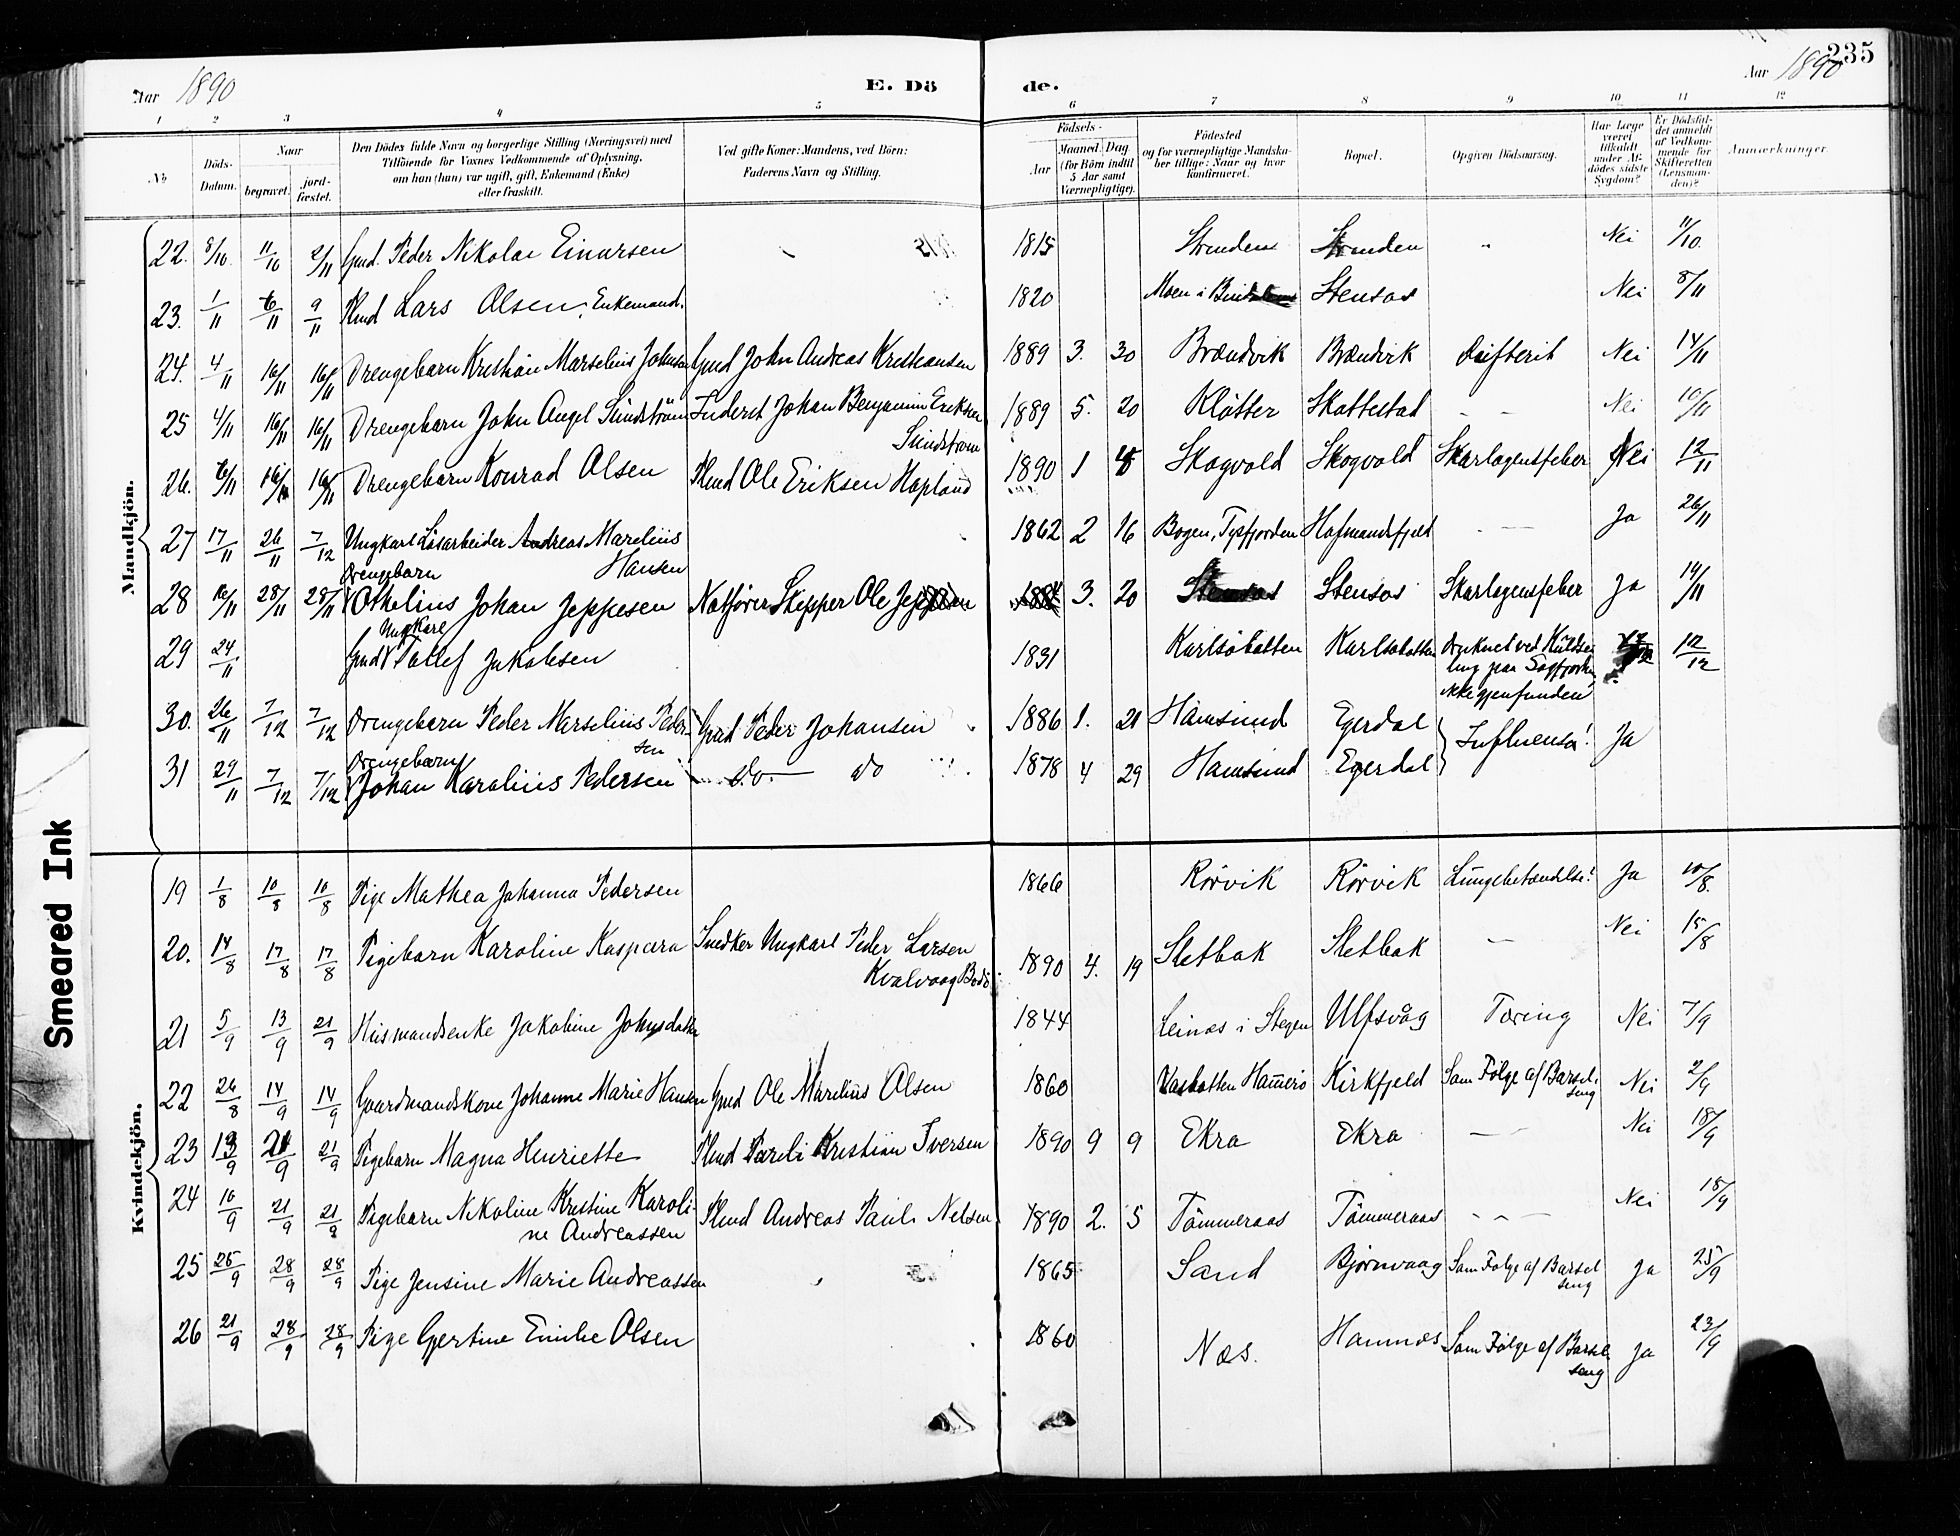 235
Aar 1890
E. Dö
de.
Aar 1890
1 2 3 4 5 6 7 8 9 10 11 12
No
Döds-
Datum.
Naar
begravet.
jord-
fæstet.
Den Dödes fulde Navn og borgerlige Stilling (Næringsvei) med
Tilföiende for Voxnes Vedkommende af Oplysning,
om han (hun) var ugift, gift, Enkemand (Enke)
eller fraskilt.
Ved gifte Koner: Mandens, ved Börn:
Faderens Navn og Stilling.
Födsels-
Aar
Maaned. Dag
(for Börn indtil
5 Aar samt
Værnepligtige).
Födested
og for værnepligtige Mandska-
ber tillige: Naar og hvor
konfirmeret.
Bopæl.
Opgiven Dödsaarsag.
Har Læge
været
tilkaldt
under Af-
dödes sidste
Sygdom?
Er Dödsfal-
det anmeldt
af Vedkom-
mende for
Skifteretten
(Lensman-
den)?
Anmærkninger.
Mandkjön.
22. 8/10 11/10 2/11 Gmd. Peder Nikolai Einarsen 1815 Strenden Strenden Nei 11/10
23. 1/11 6/11 9/11 Lars Olsen, Enkemand. 1820 Moen i Stensos Nei 8/11
24. 4/11 16/11 16/11 Drengebarn Kristian Marselius Johnsen Gmd John Andreas Kristiansen 1889 3. 30 Brændvik Brændvik Difterit Nei 14/11
25 4/11 16/11 16/11 Drengebarn John Angel Sundström Inderst Johan Benjamin Eriksen
Sundstrøm 1889 5. 20 Kløtter Skattestad — — Nei 10/11
26. 6/11 16/11 16/11 Drengebarn Konrad Olsen Ole Eriksen Hopland 1890 1 Skogvold Skogvold Skarlagensfeber Nei 12/11
27 17/11 26/11 7/12 Ungkarl Løsarbeider Andreas Marelius
Hansen 1862 2 16 Bogen, Tysfjorden Hafmandsfjeld — Ja 26/11
Drengebarn
28 10/11 28/11 28/11 Othelius Johan Jeppesen Notfører Skipper Ole 3. 20 Stensos Stensos Skarlagensfeber Ja 14/11
Ungkarl
29 24/11 Gmd Tollef Jakobsen 1831 Karlsöbotten Karlsobotten Druknet ved Kuldsei
ling paa Sagfjorden
ikke gjenfunden 12/12
30. 26/11 7/12 7/12 Drengebarn Peder Marselius Peder-
sen Gmd Peder Johansen 1886 1. 21 Hamsund Egerdal Influensa! Ja
Drengebarn
31 29/11 7/12 7/12 Johan Karolius Pedersen — do — do 1878 4 29 Hamsund Egerdal
Smeared Ink
Kvindekjön.
19 1/8 10/8 10/8 Pige Mathea Johanna Pedersen 1866 Rörvik Rörvik Lungebetændelse! Ja 10/8.
20. 14/8 17/8 17/8 Pigebarn Karoline Kaspara Snedker Ungkarl Peder Larsen
Kvalvaag Bodö 1890 4. 19 Sletbak Sletbak — Nei 15/8
21 5/9 13/9 21/9 Husmandsenke Jakobine Johnsdatter 1844 Leines i Stegen Ulfsvåg Tæring Nei 7/9
22 26/8 14/9 14/9 Gaardmandskone Johanne Marie Hansen Gmd Ole Marelius Olsen 1860 Hamerö Kirkfjeld Som Følge af Barsel-
seng Nei 2/9
23 13/9 21/9 21/9 Pigebarn Magna Henriette Kristian Iversen 1890 9 9 Ekra Ekra — — Nei 18/9
24 10/9 21/9 21/9 Pigebarn Nikoline Kristine Karoli-
ne Andreassen Andreas Paul Nelsen 1890 2. 5 Tömmeraas Tömmeraas — — Nei 18/9
25 25/9 28/9 28/9 Pige Jensine Marie Andreassen 1865 Sand Bjørnvaag Som Følge af Barsel
seng Ja 25/9
26 21/9 28/9 28/9 Pige Gjertine Emilie Olsen 1860 Næs. Hamnæs Som Følge af Barsel-
seng Ja 23/9